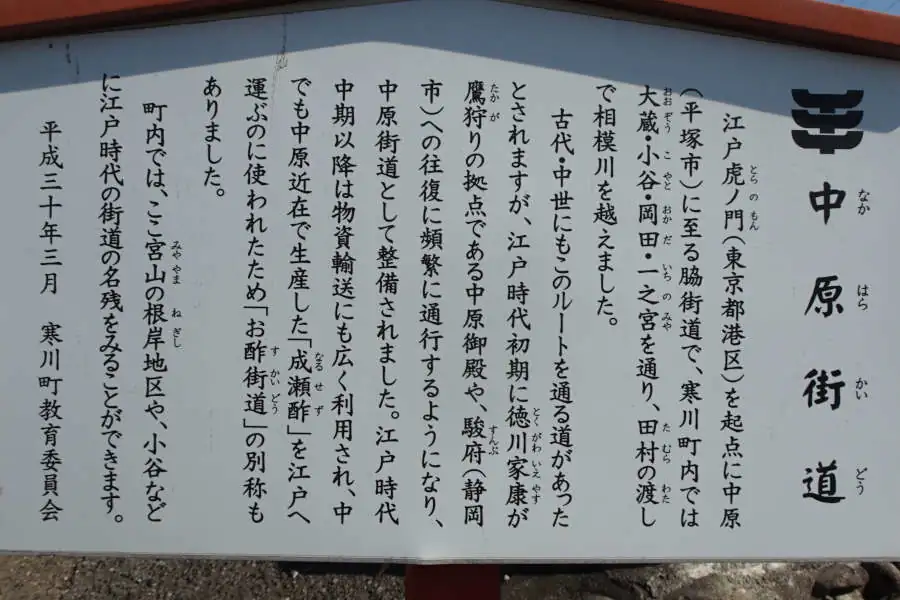 中原街道
江戸虎ノ門（東京都港区）を起点に中原
（平塚市）に至る脇街道で、寒川町内では
大蔵・小谷・岡田・一之宮を通り、田村の渡し
で相模川を越えました。
古代・中世にもこのルートを通る道があった
とされますが、江戸時代初期に徳川家康が
鷹狩りの拠点である中原御殿や、駿府（静岡
市）への往復に頻繁に通行するようになり、
中原街道として整備されました。江戸時代
中期以降は物資輸送にも広く利用され、中
でも中原近在で生産した「成瀬酢」を江戸へ
運ぶのに使われたため「お酢街道」の別称も
ありました。
町内では、ここ宮山の根岸地区や、小谷など
に江戸時代の街道の名残をみることができます。
平成三十年三月　寒川町教育委員会